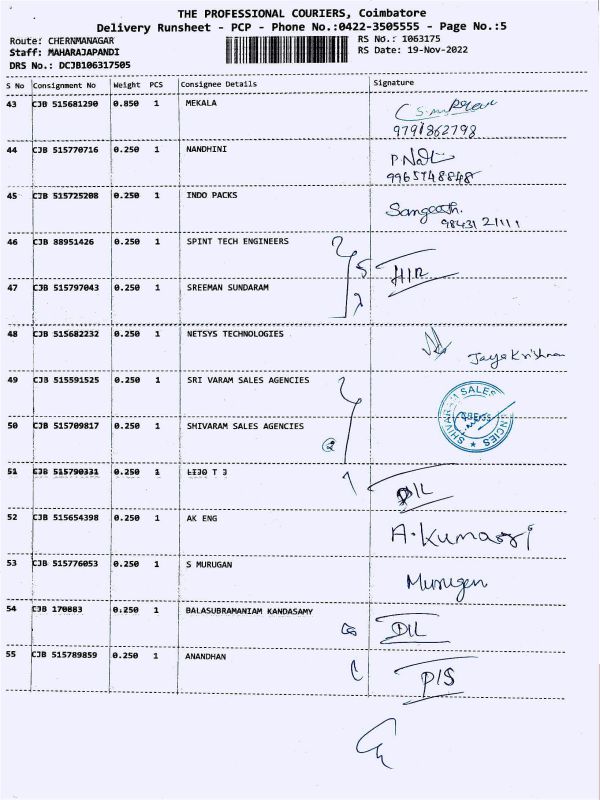 THE PROFESSIONAL COURIERS, Coimbatore
Delivery Runsheet - PCP - Phone No.:0422-3505555 - Page No.:5
Route: CHERNMANAGAR
RS No.: 1063175
Staff: MAHARAJAPANDI
RS Date: 19-Nov-2022
DRS No.: DCJB106317505
S No Consignment No Weight PCS Consignee Details Signature
43 CJB 515681290 0.850 1 MEKALA
9791862798
44 CJB 515770716 0.250 1 NANDHINI
9965748848
45 CJB 515725208 0.250 1 INDO PACKS Sangeeth.
98431 21111
46 CJB 88951426 0.250 1 SPINT TECH ENGINEERS
47 CJB 515797043 0.250 1 SREEMAN SUNDARAM
48 CJB 515682232 0.250 1 NETSYS TECHNOLOGIES
Jaya Krishnan
49 CJB 515591525 0.250 1 SRI VARAM SALES AGENCIES
SHIVARAM SALES AGENCIES
50 CJB 515709817 0.250 1 SHIVARAM SALES AGENCIES
51 CJB 515790331 0.250 1 LIJO T J
D/L
52 CJB 515654398 0.250 1 AK ENG A.Kumaari
53 CJB 515776053 0.250 1 S MURUGAN Murugen
54 CJB 170883 0.250 1 BALASUBRAMANIAM KANDASAMY
D/L
55 CJB 515789859 0.250 1 ANANDHAN
P/S